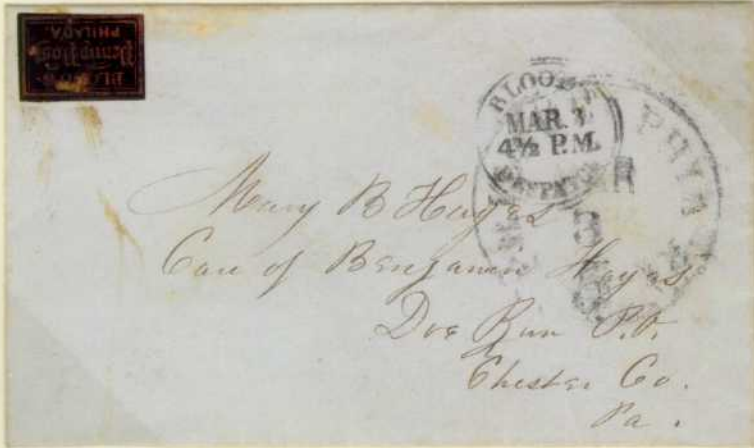 BLOOD'S
Penny Post
PHILADA.
BLOOD'S
MAR. 3
4½ P.M.
DESPATCH
PHILA
Mary B Hayes
Care of Benjamin Hayes
Doe Run P.O.
Chester Co.
Pa.